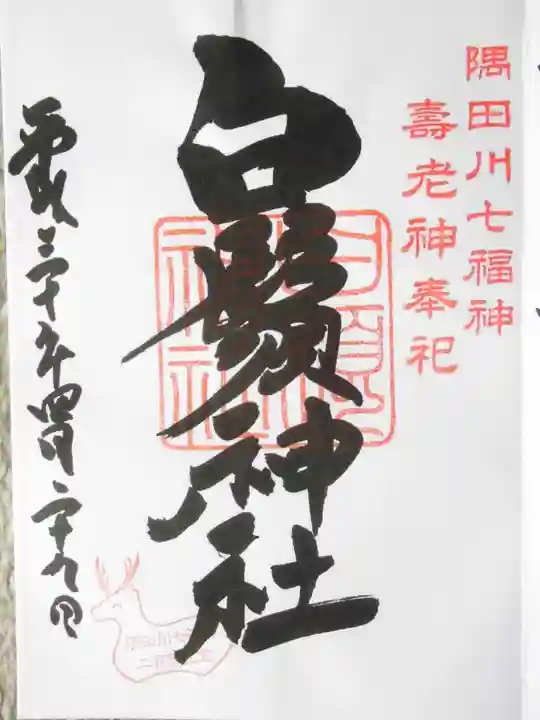 隅田川七福神
壽老神奉祀
白鬚神社
平成三十年四月二十九日